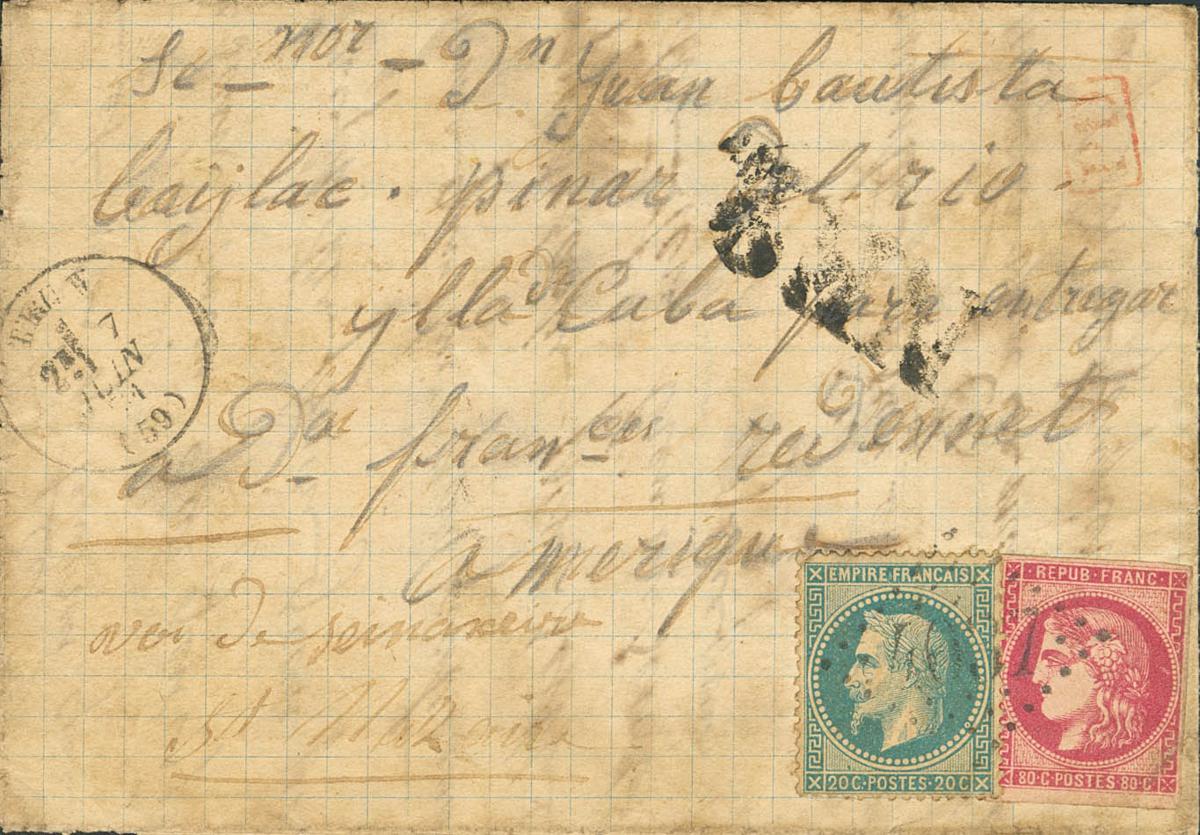 Se-nor - Dn Juan bautista
baylac. pinar del rio.
ylla de Cuba para entregar
a Da frances redennet
amerique
voi de
St
7
JUIN
(59)
EMPIRE FRANCAIS
20 C·POSTES·20 C
REPUB·FRANC·
80·C·POSTES·80·C